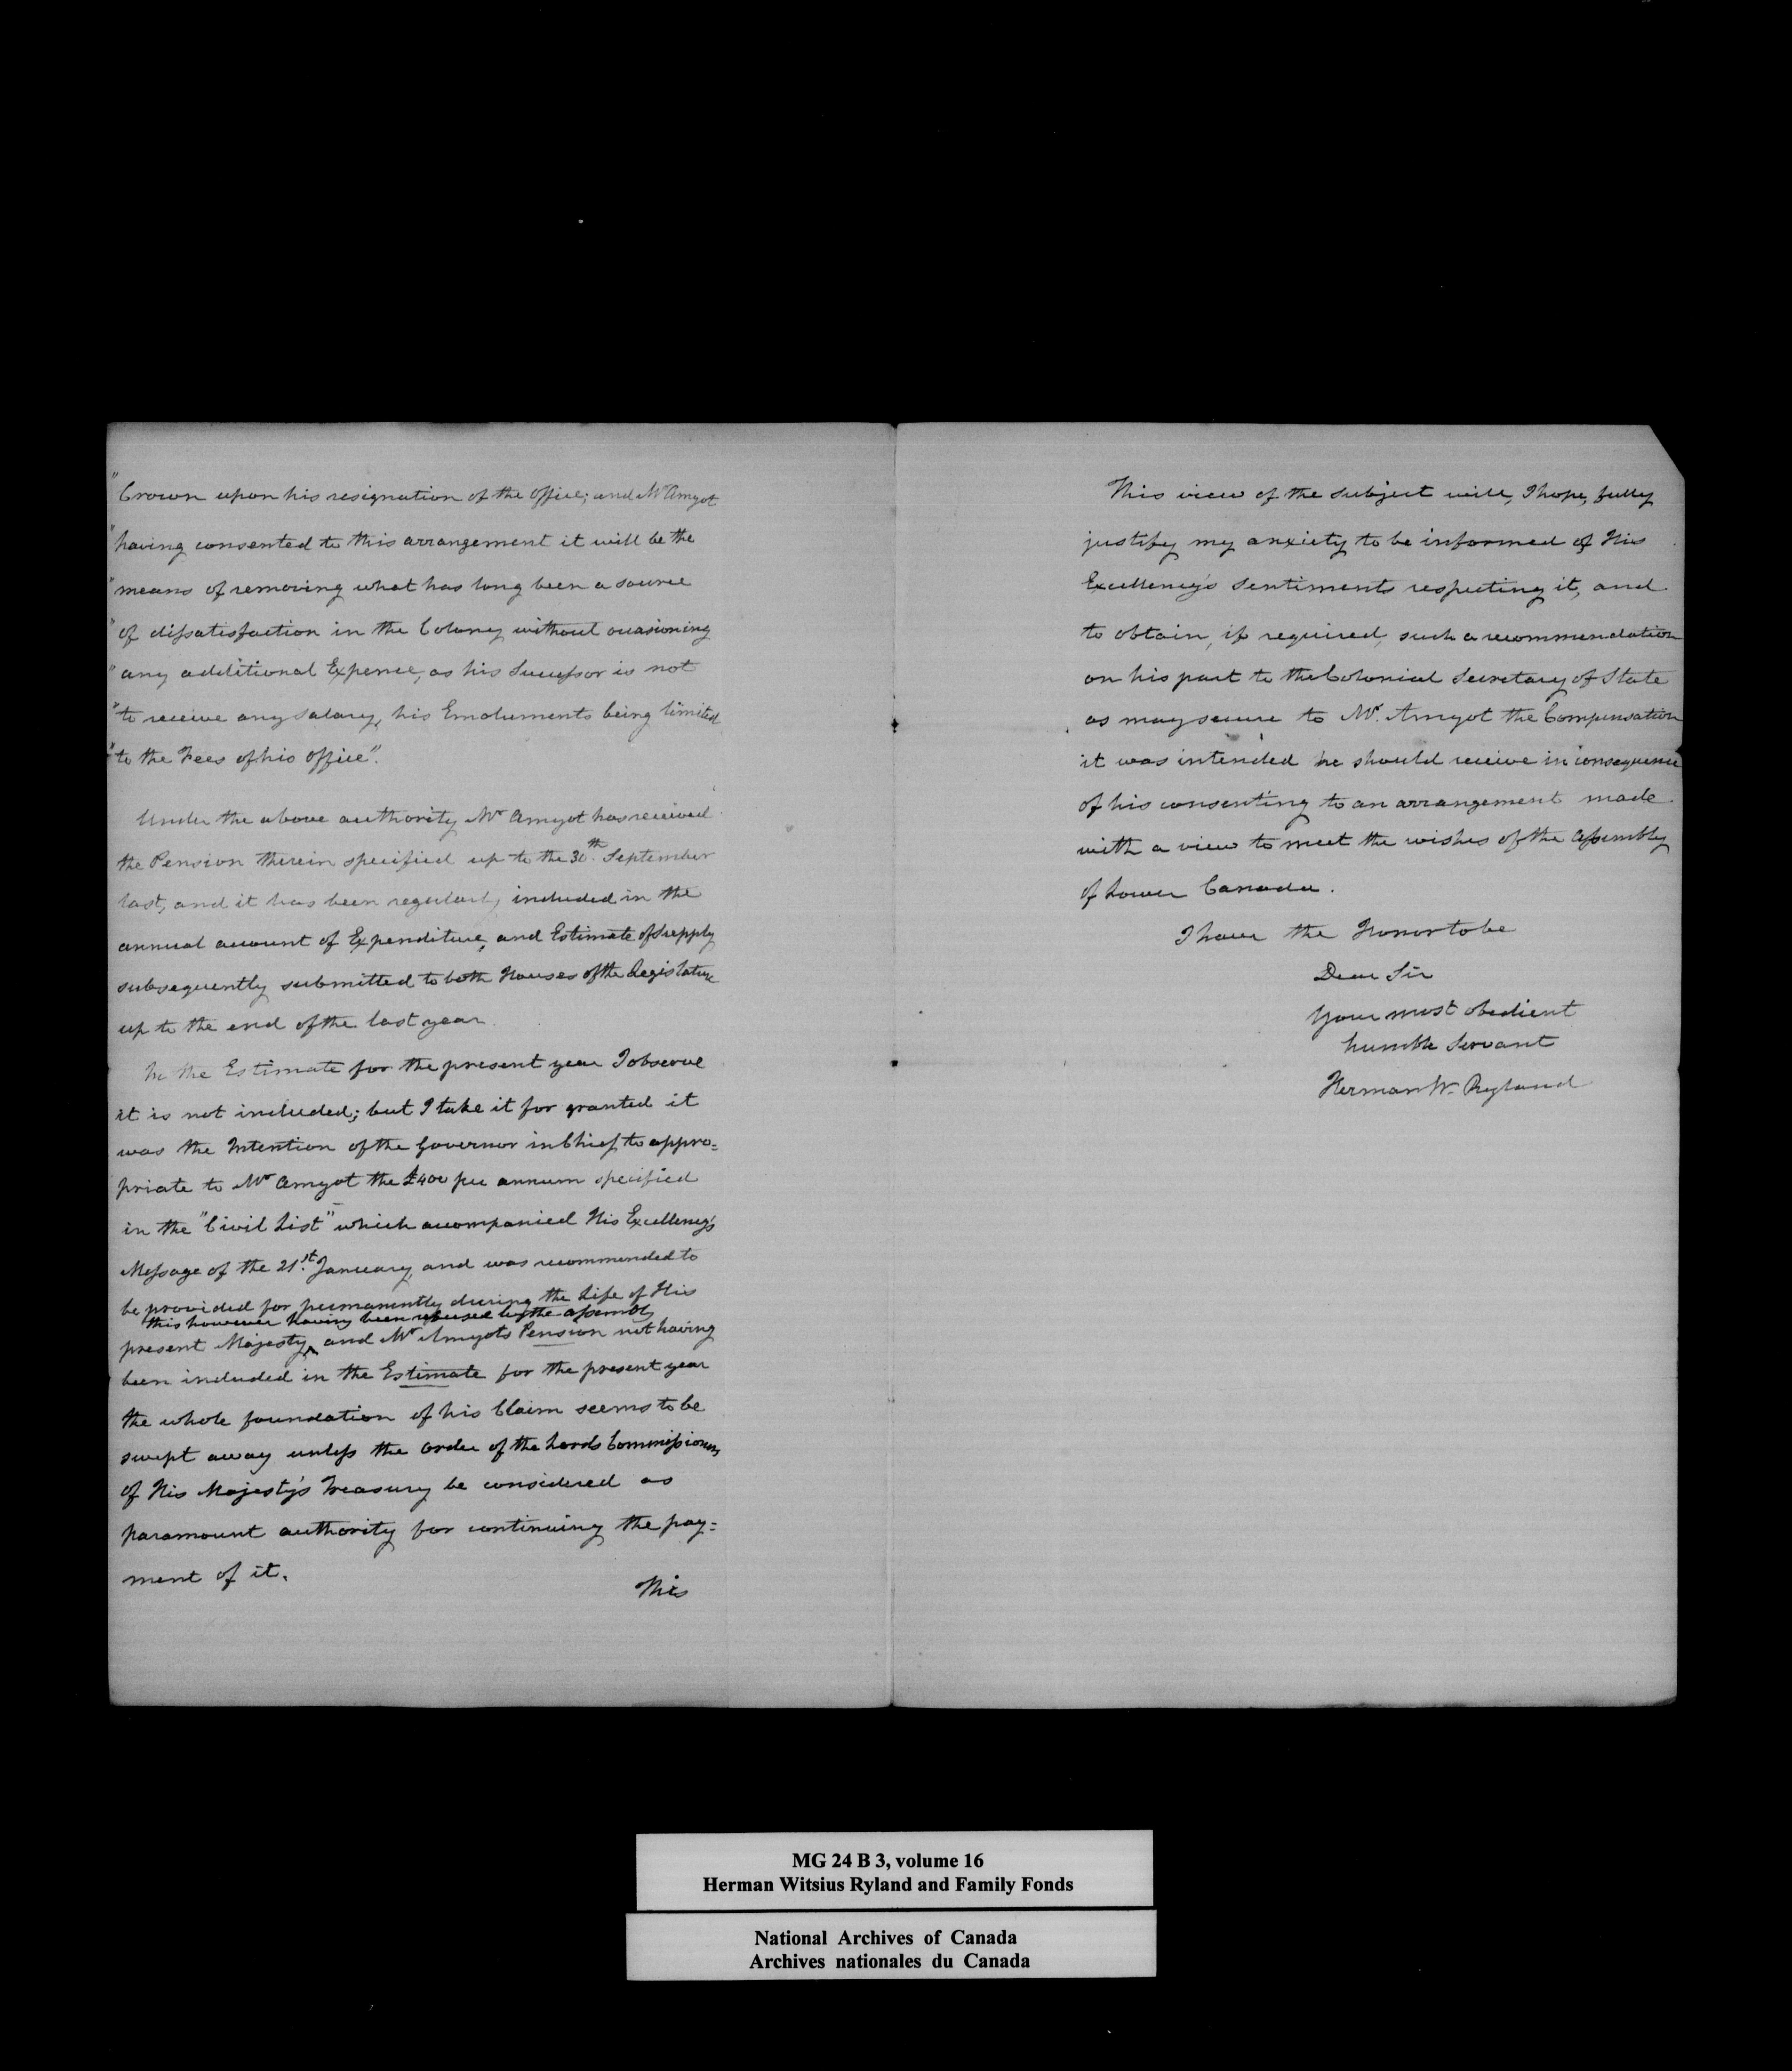 "Crown upon his resignation of the office; and Mr Amyot
"having consented to this arrangement it will be the
"means of removing what has long been a source
"of dissatisfaction in the Colony without occasioning
"any additional Expence, as his Successor is not
"to receive any salary, his Emoluments being limited
"to the Fees of his office".
Under the above authority Mr Amyot has received
the Pension therein specified up to the 30th. September
last, and it has been regularly included in the
annual account of Expenditure, and Estimate of Supply
subsequently submitted to both Houses of the Legislature
up to the end of the last year
In the Estimate for the present year I observe
it is not included; but I take it for granted it
was the Intention of the Governor in Chief to appro=
priate to Mr Amyot the £400 per annum specified
in the "Civil List" which accompanied His Excellency's
Message of the 21st. January, and was recommended to
be provided for permanently during the Life of His
this however having been refused by the assembly
present Majesty, and Mr Amyots Pension not having
been included in the Estimate for the present year
the whole foundation of his Claim seems to be
swept away unless the order of the Lords Commissioners
of His Majesty's Treasury be considered as
paramount authority for continuing the pay=
ment of it.
This
This view of the subject will, I hope, fully
justify my anxiety to be informed of His
Excellency's Sentiments respecting it, and
to obtain, if required, such a recommendation
on his part to the Colonial Secretary of State
as may secure to Mr. Amyot the Compensation
it was intended he should receive in consequence
of his consenting to an arrangement made
with a view to meet the wishes of the Assembly
of Lower Canada.
I have the Honor to be
Dear Sir
Your most obedient
humble Servant
Herman W. Ryland
MG 24 B 3, volume 16
Herman Witsius Ryland and Family Fonds
National Archives of Canada
Archives nationales du Canada